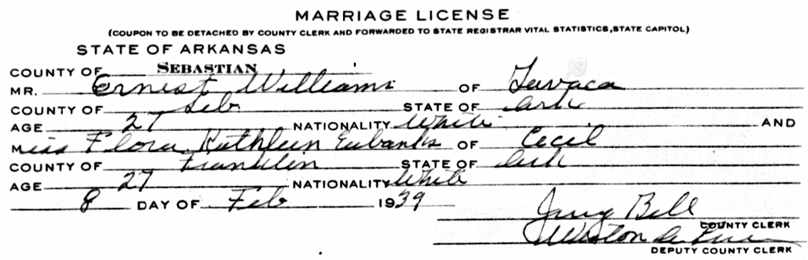 MARRIAGE LICENSE
(COUPON TO BE DETACHED BY COUNTY CLERK AND FORWARDED TO STATE REGISTRAR VITAL STATISTICS, STATE CAPITOL)
STATE OF ARKANSAS
COUNTY OF SEBASTIAN
MR. Ernest Williams OF Lavaca
COUNTY OF Seb STATE OF Ark
AGE 27 NATIONALITY White AND
Miss Flora Kathleen Eubanks OF Cecil
COUNTY OF Franklin STATE OF Ark
AGE 27 NATIONALITY White
8 DAY OF Feb 1939
Bell
COUNTY CLERK
DEPUTY COUNTY CLERK